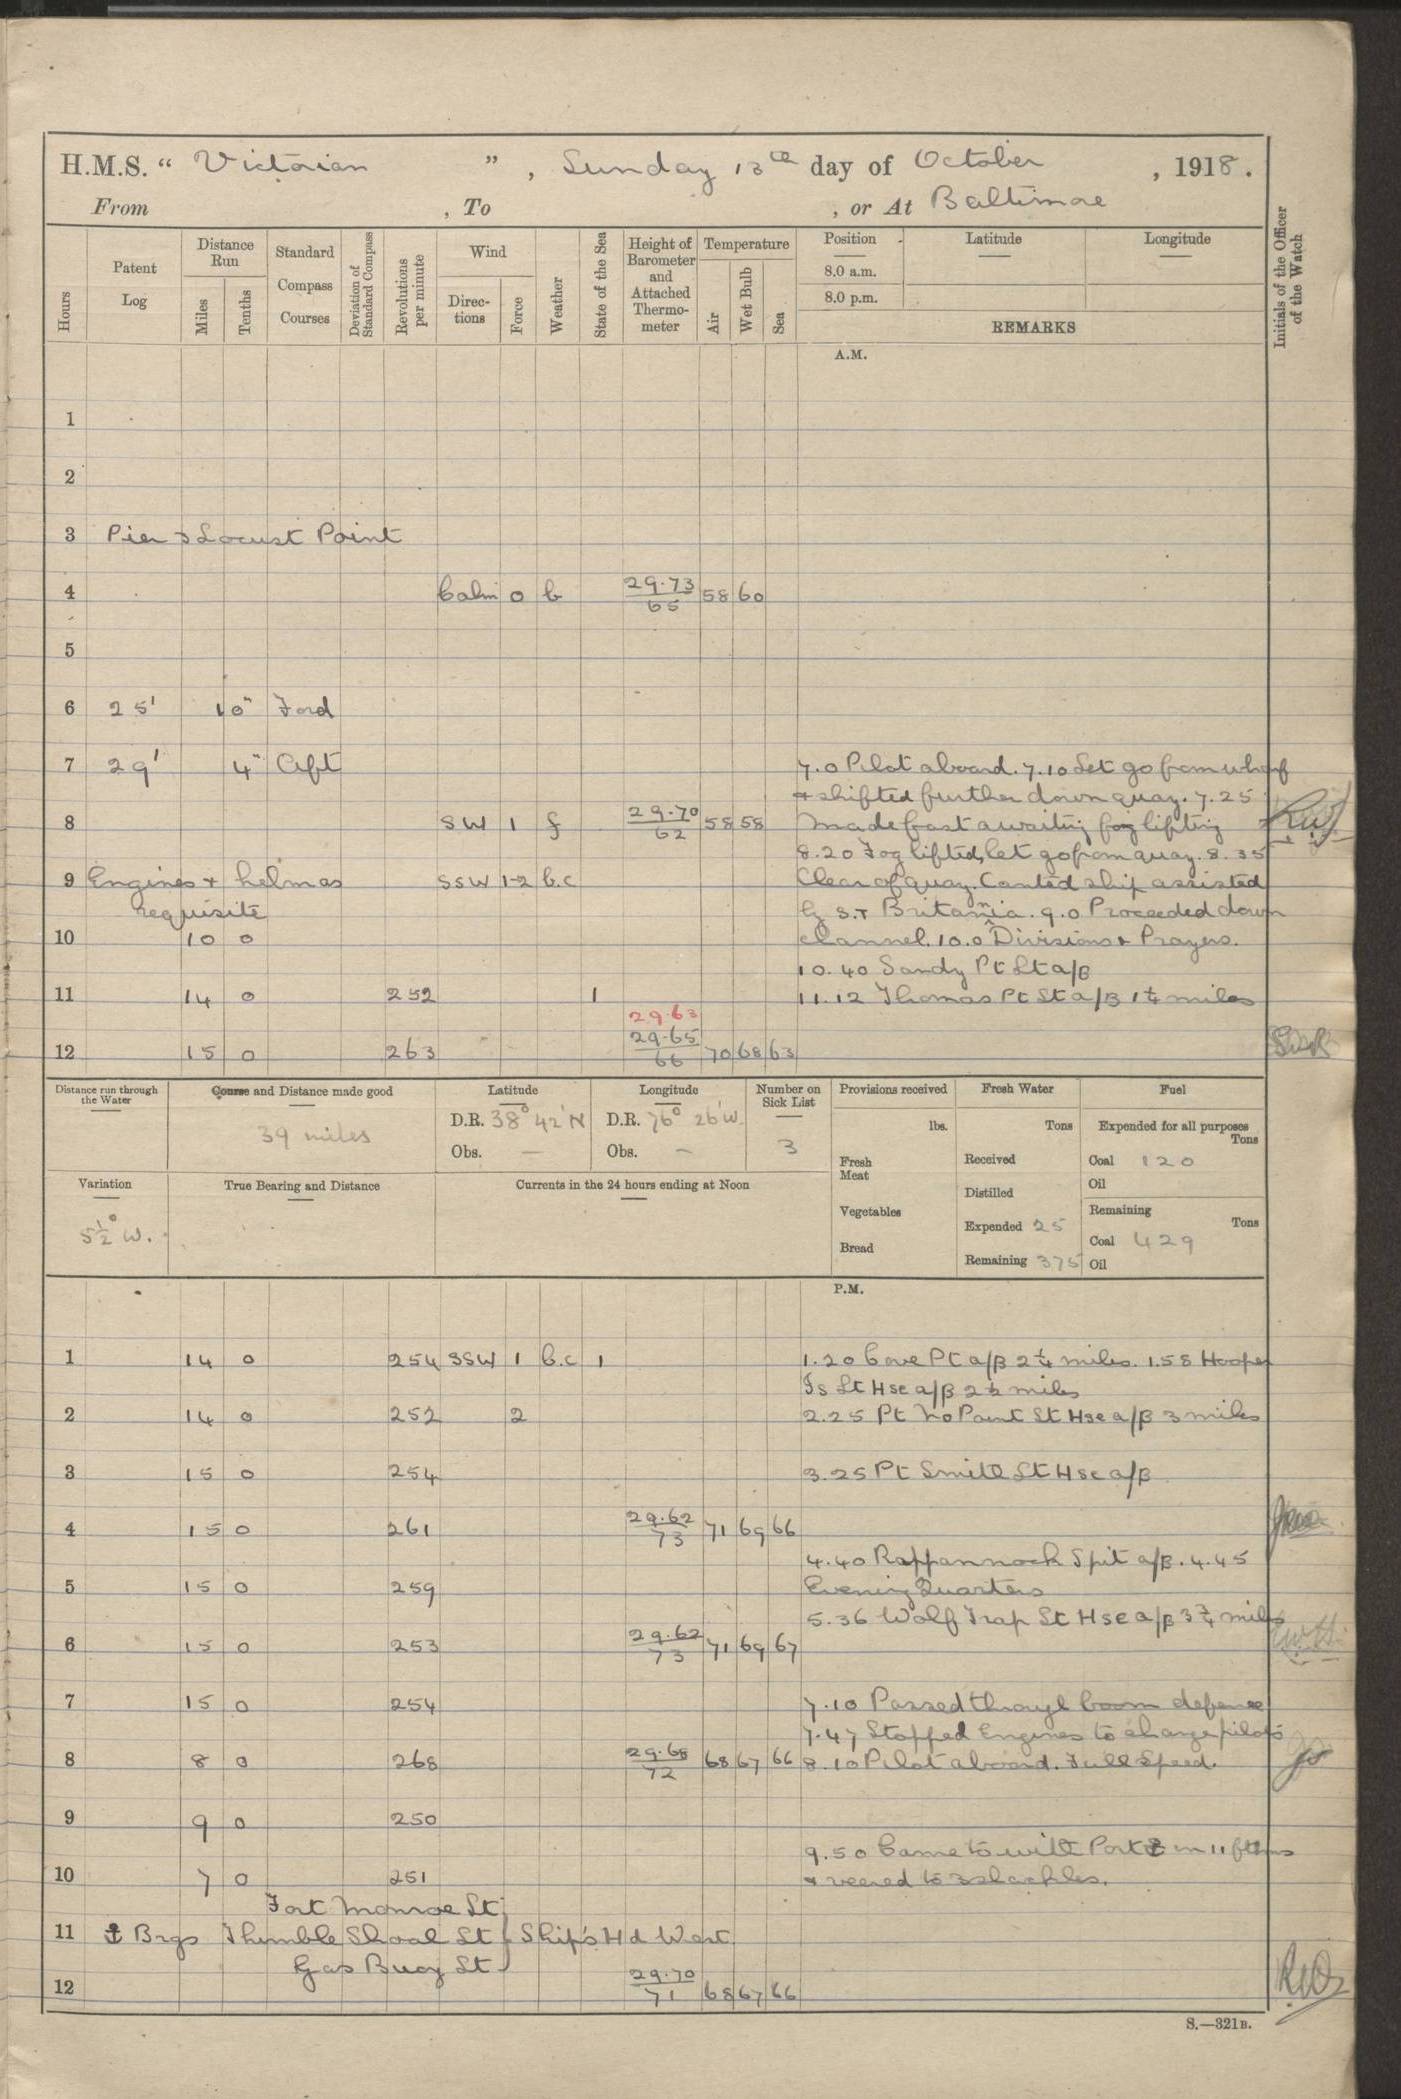 H.M.S. “ Victorian ”, Sunday 13th day of October, 1918.
From , To , or At Baltimore
Hours
Patent Log
Distance Run
Miles
Tenths
Standard Compass Courses
Deviation of Standard Compass
Revolutions per minute
Wind
Direc-tions
Force
Weather
State of the Sea
Height of Barometer and Attached Thermo-meter
Temperature
Air
Wet Bulb
Sea
Position
Latitude
Longitude
8.0 a.m.
8.0 p.m.
REMARKS
Initials of the Officer of the Watch
A.M.
1
2
3 Pier 3 Locust Point
4 Calm 0 b 29.73/65 58 60
5
6 25' 10" Ford
7 29' 4" Aft 7.0 Pilot aboard. 7.10 Let go from wharf
& shifted further down quay. 7.25
8 SW 1 f 29.70/62 58 58 Made fast awaiting fog lifting
8.20 Fog lifted, let go from quay. 8.35
9 Engines & helm as SSW 1-2 b.c Clear of quay. Canted ship assisted
requisite by S.T Britannia. 9.0 Proceeded down
10 10 0 channel. 10.0 Divisions & Prayers.
10.40 Sandy Pt Lt a/B
11 14 0 252 1 11.12 Thomas Pt Lt a/B 1¼ miles
29.63
12 15 0 263 29.65/66 70 68 63
Distance run through the Water
Course and Distance made good
39 miles
Latitude
D.R. 38° 42' N
Obs. —
Longitude
D.R. 76° 26' W.
Obs. —
Number on Sick List
3
Provisions received
lbs.
Fresh Meat
Vegetables
Bread
Fresh Water
Tons
Received
Distilled
Expended 25
Remaining 375
Fuel
Expended for all purposes
Tons
Coal 120
Oil
Remaining
Tons
Coal 429
Oil
Variation
5½° W.
True Bearing and Distance
Currents in the 24 hours ending at Noon
P.M.
1 14 0 254 SSW 1 b.c 1 1.20 Cove Pt a/B 2¼ miles. 1.58 Hooper
Is Lt Hse a/B 2½ miles
2 14 0 252 2 2.25 Pt No Point Lt Hse a/B 3 miles
3 15 0 254 3.25 Pt Smith Lt Hse a/B
4 15 0 261 29.62/73 71 69 66
4.40 Rappannock Spit a/B. 4.45
5 15 0 259 Evening Quarters
5.36 Wolf Trap Lt Hse a/B 3¾ miles
6 15 0 253 29.62/73 71 69 67
7 15 0 254 7.10 Passed through boom defence
7.47 Stopped Engines to change pilots
8 8 0 268 29.68/72 68 67 66 8.10 Pilot aboard. Full Speed.
9 9 0 250
9.50 Came to with Port ⚓ in 11 fthms
10 7 0 251 & veered to 3 shackles.
Fort Monroe Lt
11 ⚓ Brgs Thimble Shoal Lt } Ship's Hd West
Gas Buoy Lt
12 29.70/71 68 67 66
S.—321B.